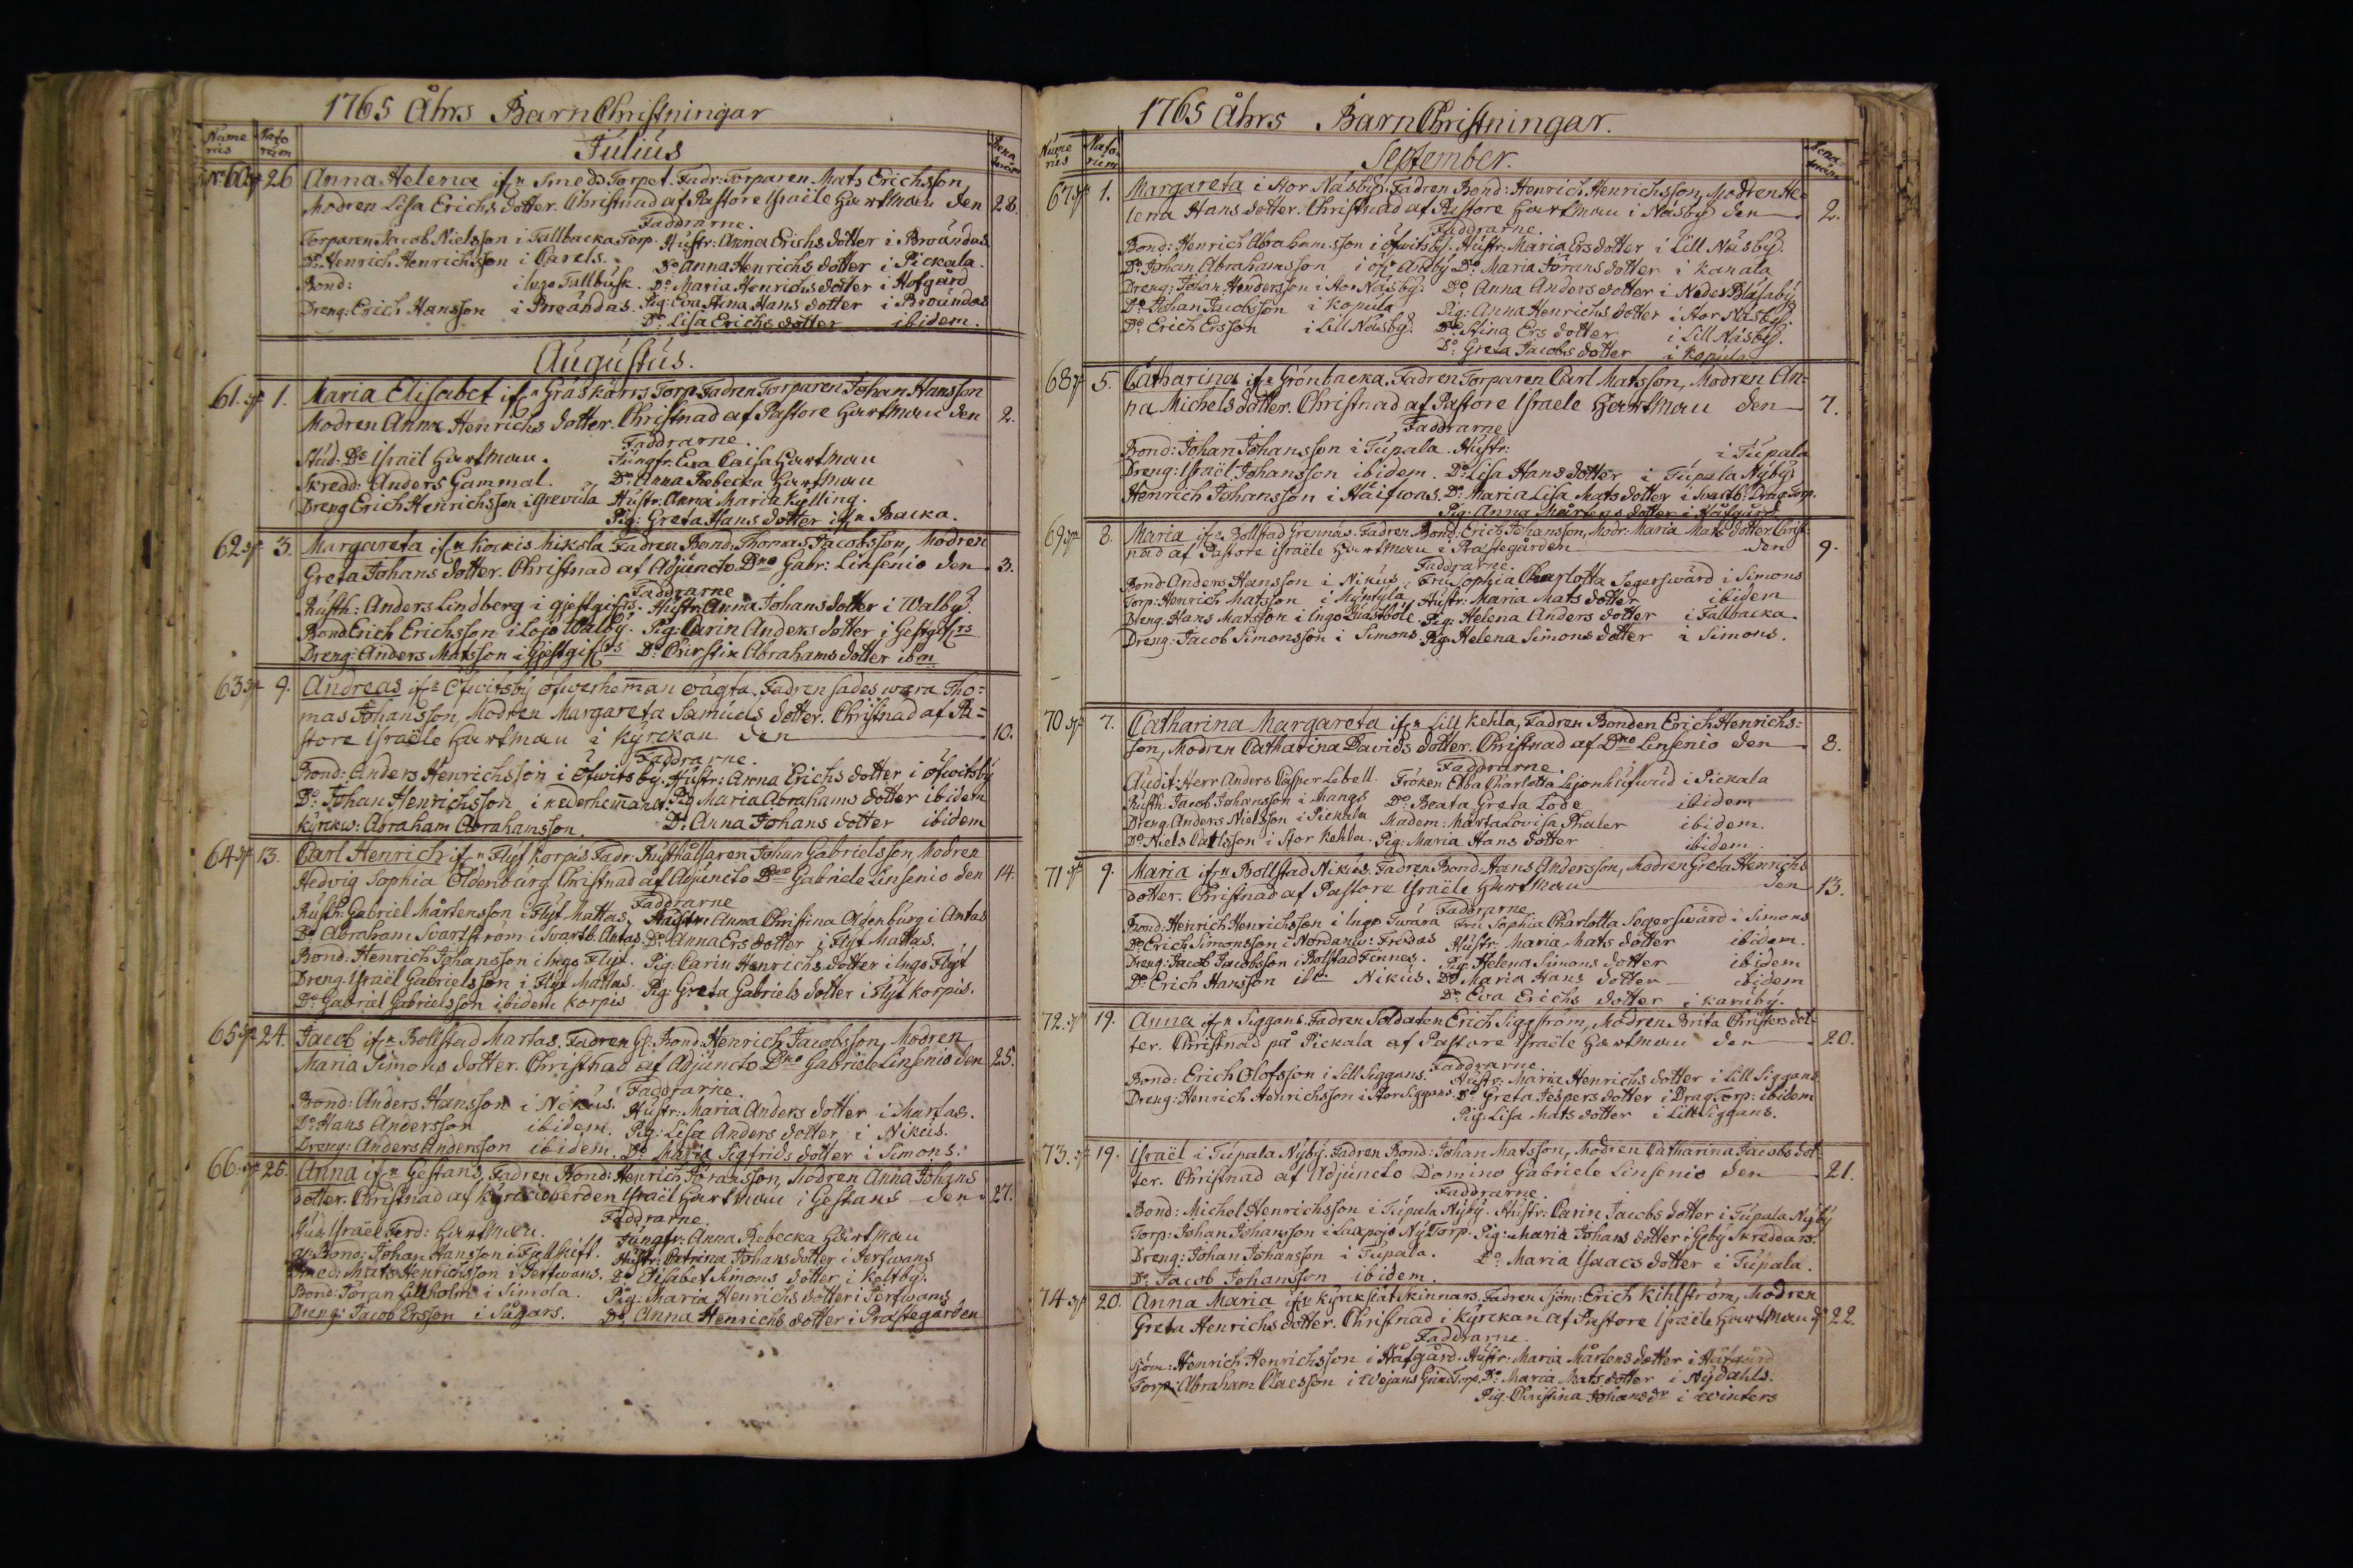 1765 Åhrs BarnChristningar
Nume
rus
Nato
rum
Julius
Rena
torum
No 60 26 Anna Helena ifrn Smeds Torpet. Fadr: Torparen Mats Erichsson
Modren Lisa Erichs dotter. Christnad af Pastore Israële Hartman den 28.
Faddrarne.
Torparen Jacob Nielsson i Tallbacka Torp. Hustr: Anna Erichs dotter i Broändas
Do Henrich Henrichsson i Carels. Do Anna Henrichs dotter i Pickala.
Bond: i Ingo Tallbusk. Do Maria Henrichs dotter i Hofgård
Dreng: Erich Hansson i Broändas. Pig: Eva Stina Hans dotter i Broändas
Do: Lisa Erichs dotter ibidem.
Augustus.
61. 1. Maria Elisabet ifrn Gräskärrs Torp Fadren Torparen Johan Hansson
Modren Anna Henrichs dotter. Christnad af Pastore Hartman den 2.
Faddrarne.
Stud: Ds Israël Hartman. Jungfr: Eva Caisa Hartman
Skredd: Anders Gammal. Do: Anna Rebecka Hartman
Dreng Erich Henrichsson i Grevula Hustr: Anna Maria Kyelling.
Pig: Greta Hans dotter ifrn Backa.
62. 3. Margareta ifrn Kockis Miksla Fadren Bond: Thomas Jacobsson, Modren
Greta Johans dotter. Christnad af Adjuncto Dno Gabr: Linsenio den 3.
Faddrarne
Rusth: Anders Lindberg i gjestgifrs. Hustr: Anna Johans dotter i Walby.
Bond Erich Erichsson i Lojo Walby. Pig: Carin Anders dotter i Gestgifrs
Dreng: Anders Matsson i Gjestgifrs Do: Christin Abrahams dotter ibm
63 9. Andreas ifrn Öfwitsby öfwerheman oägta. Fadren sades wara Tho-
mas Johansson, Modren Margareta Samuels dotter. Christnad af Pa-
store Israële Hartman i Kyrckan den 10.
Faddrarne.
Bond: Anders Henrichsson i Öfwitsby. Hustr: Anna Erichs dotter i Öfwitsby
Do: Johan Henrichsson i nederhemanet. Pig Maria Abrahams dotter ibidem
Kyrckw: Abraham Abrahamsson. Do: Anna Johans dotter ibidem
64 13. Carl Henrich ifrn Flyt Korpis Fadr: Rusthållaren Johan Gabrielsson, Modren
Hedvig Sophia Oldenburg Christnad af Adjuncto Dno Gabriele Linsenio den 14.
Faddrarne
Rusth: Gabriel Mårtensson i Flyt Mattas. Hustr: Anna Christina Oldenburg i Antas
Do Abraham Svartström i Svartb. Antas. Do: Anna Ers dotter i Flyt Mattas.
Bond: Henrich Johansson i Ingo Flyt. Pig: Carin Henrichs dotter i Ingo Flyt
Dreng. Israël Gabrielsson i Flyt Mattas. Pig: Greta Gabriels dotter i Flyt Korpis.
Do Gabriel Gabrielsson ibidem Korpis
65 24. Jacob ifrn Bollstad Martas. Fadren Bond Henrich Jacobsson, Modren
Maria Simons dotter. Christnad af Adjuncto Dno Gabriele Linsenio den 25.
Faddrarne.
Bond: Anders Hansson i Nikus. Hustr: Maria Anders dotter i Martas.
Do Hans Andersson ibidem. Pig: Lisa Anders dotter i Nikus.
Dreng: Anders Andersson ibidem. Do Maria Sigfrids dotter i Simons.
66. 26. Anna ifrn Gestans, Fadren Bond: Henrich Jöransson, Modren Anna Johans
dotter. Christnad af Kyrckioherden Israël Hartman i Gestans den 27.
Faddrarne
Stud: Israël Ferd: Hartman. Jungfr: Anna Rebecka Hartman
Bond: Johan Hansson i Fjellskift. Hustr: Catrina Johans dotter i Serfwans
Smed: Mats Henrichsson i Serfwans. Do Elisabet Simons dotter i Koltby.
Bond: Jöran Lillholm i Simola. Pig: Maria Henrichs dotter i Serfwans
Dreng: Jacob Ersson i Sågars. Do: Anna Henrichs dotter i Prästegården
1765 Åhrs BarnChristningar.
Nume
rus
Nato-
rum
September.
Rena-
torum
67 1. Margareta i Stor Näsby. Fadren Bond: Henrich Henrichsson, Modren He-
lena Hans dotter. Christnad af Pastore Hartman i Näsby den 2.
Faddrarne.
Bond: Henrich Abrahamsson i Öfwitsby. Hustr: Maria Ers dotter i Lill Näsby.
Do Johan Abrahamsson Do: Maria Jörans dotter i Kanala
Dreng: Johan Hendersson i Stor Näsby. Do: Anna Anders dotter i Neder Bläsaby
Do: Johan Jacobsson i Kopula Pig: Anna Henrichs dotter i Stor Näsby.
Do: Erich Ersson i Lill Näsby. Do Stina Ers dotter i Lill Näsby.
Do: Greta Jacobs dotter i Kopula.
68 5. Catharina ifrn Grönbacka. Fadren Torparen Carl Matsson, Modren An-
na Michels dotter. Christnad af Pastore Israele Hartman den 7.
Faddrarne
Bond: Johan Johansson i Tupala. Hustr: i Tupala
Dreng: Israël Johansson ibidem. Do: Lisa Hans dotter i Tupala Nyby
Henrich Johansson i Häifwas. Do: Maria Lisa Mats dotter i Svartb: Drag Torp.
Pig: Anna Mårtens dotter i Håfgård
69 8. Maria ifrn Bollstad Grennäs. Fadren Bond: Erich Johansson, Modr: Maria Mats dotter Christ-
nad af Pastore Israële Hartman i Prästegården den 9.
Faddrarne.
Bond Anders Hansson i Nikus. Fru Sophia Charlotta Segerswärd i Simons
Torp: Henrich Matsson i Myntyla Hustr: Maria Mats dotter ibidem
Dreng. Hans Matsson i Ingo Pig: Helena Anders dotter i Tallbacka.
Dreng: Jacob Simonsson i Simons. Pig Helena Simons dotter i Simons.
70 7. Catharina Margareta ifrn Lill Kehla, Fadren Bonden Erich Henrichs-
son, Modren Catharina Davids dotter. Christnad af Dno Linsenio den 8.
Faddrarne.
Audit: Herr Anders Casper Lebell. Fröken Ebba Charlotta Lejonhufwud i Pickala
Rusth: Jacob Johansson i Mangs Do: Beata Greta Lode ibidem
Dreng. Anders Nielsson i Pickala Madem: Märta Lovisa Phaler ibidem.
Do Niels Carlsson i Stor Kehla. Pig: Maria Hans dotter ibidem.
71 9. Maria ifrn Bollstad Nikus. Fadren Bond: Hans Andersson, Modren Greta Henrichs
dotter. Christnad af Pastore Israële Hartman den 13.
Faddrarne
Bond: Henrich Henrichsson i Ingo Twära Fru Sophia Charlotta Segerswärd i Simons
Do Erich Simonsson i Nordanw: Frodas Hustr: Maria Mats dotter ibidem.
Dreng: Jacob Jacobsson i Bolstad Finnes. Pig: Helena Simons dotter ibidem
Do: Erich Hansson Nikus. Do Maria Hans dotter ibidem
Do: Eva Erichs dotter i Karuby.
72. 19. Anna ifrn Siggans. Fadren Soldaten Erich Siggström, Modren Brita Christers dot-
ter. Christnad på Pickala af Pastore Israële Hartman den 20.
Faddrarne
Bond: Erich Olofsson i Lill Siggans. Hustr: Maria Henrichs dotter i Lill Siggans
Dreng: Henrich Henrichsson i Stor Siggans. Do Greta Jespers dotter i Drag Torp: ibidem
Pig: Lisa Mats dotter i Lill Siggans.
73. 19. Israël i Tupala Nyby. Fadren Bond: Johan Matsson, Modren Catharina Jacobs dot-
ter. Christnad af Adjuncto Domino Gabriele Linsenio den 21.
Faddrarne.
Bond: Michel Henrichsson i Tupala Nyby. Hustr: Carin Jacobs dotter i Tupala Nyby
Torp: Johan Johansson i Laxpojo Ny Torp. Pig: Maria Johans dotter i Gyby Skreddars.
Dreng: Johan Johansson i Tupala. Do: Maria Isaacs dotter i Tupala.
Do: Jacob Johansson ibidem.
74 20. Anna Maria ifrn Kyrckslätskinnars. Fadren Sjöm: Erich Kihlström, Modren
Greta Henrichs dotter. Christnad i Kyrckan af Pastore Israële Hartman d: 22.
Faddrarne.
Sjöm: Henrich Henrichsson i Håfgård. Hustr: Maria Mårtens dotter i Håfgård
Torp: Abraham Claesson i Wejans Grind Torp. Do: Maria Mats dotter i Nydahls.
Pig: Christina Johans dr i Winters